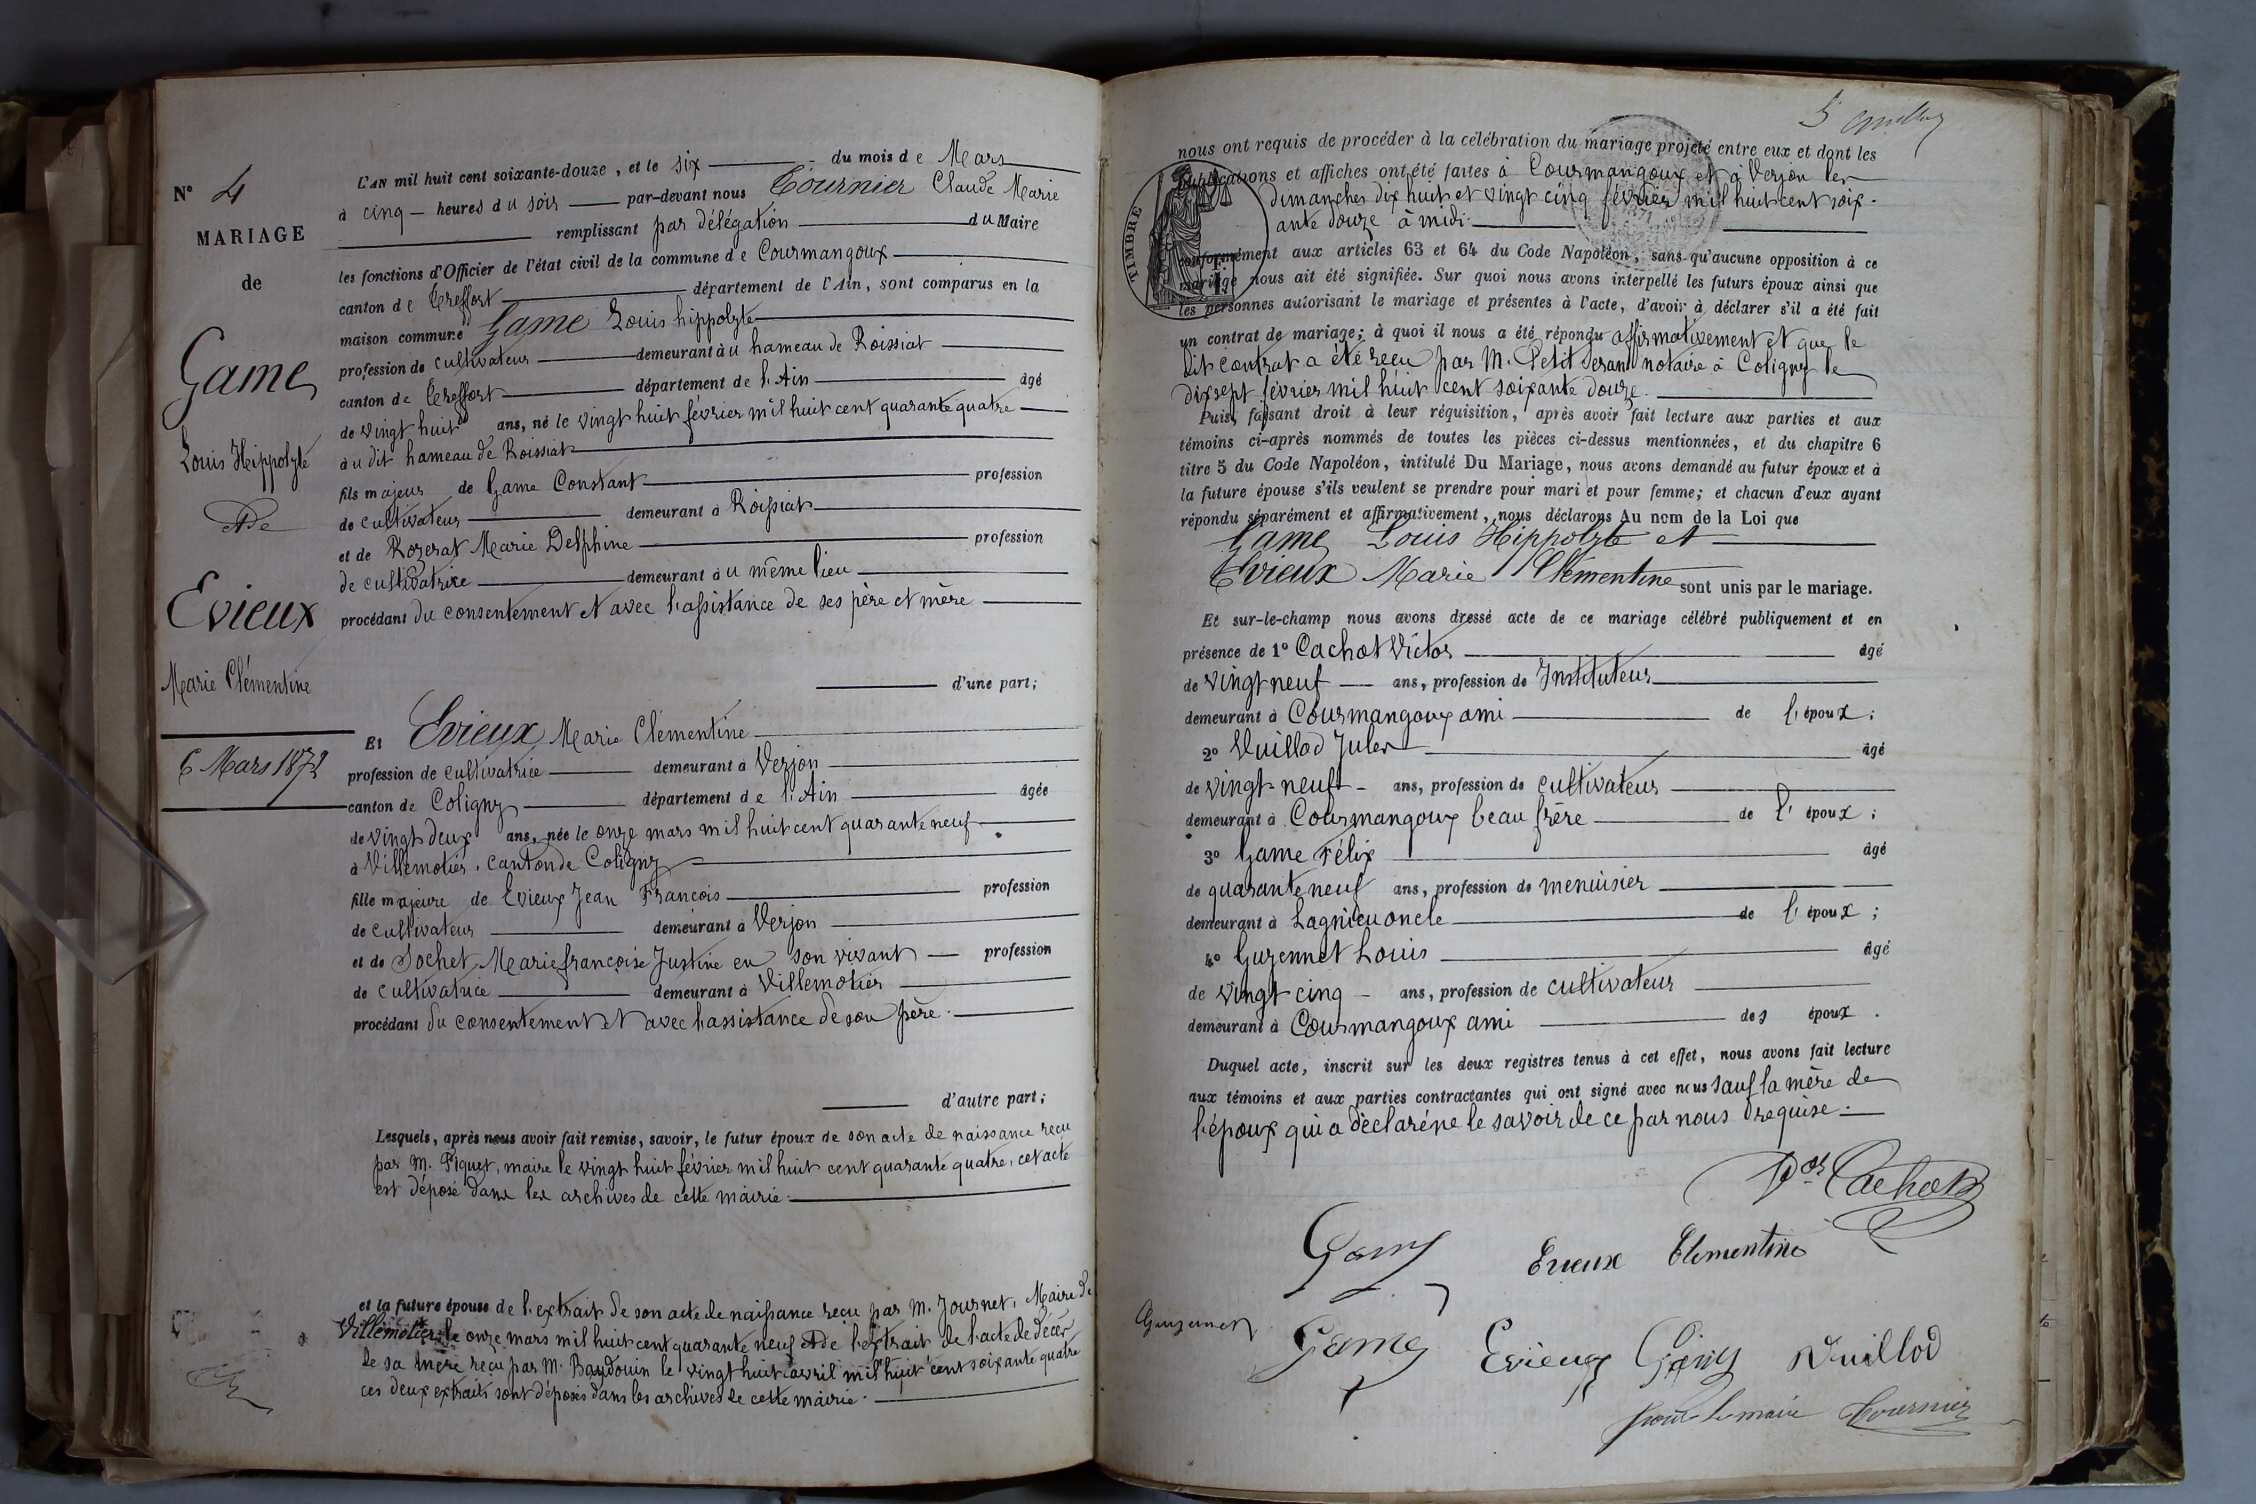 N° 4
MARIAGE
de
Game
Louis Hippolyte
et de
Evieux
Marie Clémentine
6 Mars 1872
L'AN mil huit cent soixante-douze, et le six du mois de Mars
à cinq heures du soir par-devant nous Tournier Claude Marie
remplissant par délégation du Maire
les fonctions d'Officier de l'état civil de la commune de Courmangoux
canton de Treffort département de l'Ain, sont comparus en la
maison commune Game Louis hippolyte
profession de cultivateur demeurant au hameau de Roissiat
canton de Treffort département de l'Ain âgé
de vingt huit ans, né le vingt huit février mil huit cent quarante quatre
au dit hameau de Roissiat
fils majeur de Game Constant profession
de cultivateur demeurant à Roissiat
et de Rozerat Marie Delphine profession
de cultivatrice demeurant au même lieu
procédant du consentement et avec l'assistance de ses père et mère
d'une part;
Et Evieux Marie Clémentine
profession de cultivatrice demeurant à Verjon
canton de Coligny département de l'Ain âgée
de vingt deux ans, née le onze mars mil huit cent quarante neuf
à Villemotier, canton de Coligny
fille majeure de Evieux Jean François profession
de cultivateur demeurant à Verjon
et de Sochet Marie françoise Justine en son vivant profession
de cultivatrice demeurant à Villemotier
procédant du consentement et avec l'assistance de son père.
d'autre part;
Lesquels, après nous avoir fait remise, savoir, le futur époux de son acte de naissance reçu
par M. Piquet, maire le vingt huit février mil huit cent quarante quatre, cet acte
est déposé dans les archives de cette mairie.
et la future épouse de l'extrait de son acte de naissance reçu par M. Journet, Maire de
Villemotier le onze mars mil huit cent quarante neuf et de l'extrait de l'acte de décès
de sa mère reçu par M. Baudouin le vingt huit avril mil huit cent soixante quatre
ces deux extraits sont déposés dans les archives de cette mairie.
nous ont requis de procéder à la célébration du mariage projeté entre eux et dont les
publications et affiches ont été faites à Courmangoux et à Verjon les
dimanches dix huit et vingt cinq février mil huit cent soix-
ante douze à midi.
TIMBRE
conformément aux articles 63 et 64 du Code Napoléon, sans qu'aucune opposition à ce
mariage nous ait été signifiée. Sur quoi nous avons interpellé les futurs époux ainsi que
les personnes autorisant le mariage et présentes à l'acte, d'avoir à déclarer s'il a été fait
un contrat de mariage; à quoi il nous a été répondu affirmativement et que le
dit contrat a été reçu par M. Petit Jeran notaire à Coligny le
dix sept février mil huit cent soixante douze.
Puis, faisant droit à leur réquisition, après avoir fait lecture aux parties et aux
témoins ci-après nommés de toutes les pièces ci-dessus mentionnées, et du chapitre 6
titre 5 du Code Napoléon, intitulé Du Mariage, nous avons demandé au futur époux et à
la future épouse s'ils veulent se prendre pour mari et pour femme; et chacun d'eux ayant
répondu séparément et affirmativement, nous déclarons Au nom de la Loi que
Game Louis Hippolyte et
Evieux Marie Clémentine sont unis par le mariage.
Et sur-le-champ nous avons dressé acte de ce mariage célébré publiquement et en
présence de 1° Cachot Victor âgé
de vingt neuf ans, profession de Instituteur
demeurant à Courmangoux ami de l'époux;
2° Vuillod Jules âgé
de vingt neuf ans, profession de cultivateur
demeurant à Courmangoux beau frère de l'époux;
3° Game Félix âgé
de quarante neuf ans, profession de menuisier
demeurant à Lagnieu oncle de l'époux;
4° Guzennet Louis âgé
de vingt cinq ans, profession de cultivateur
demeurant à Courmangoux ami des époux.
Duquel acte, inscrit sur les deux registres tenus à cet effet, nous avons fait lecture
aux témoins et aux parties contractantes qui ont signé avec nous sauf la mère de
l'époux qui a déclaré ne le savoir de ce par nous requise.
Vor Cachot
Game
Evieux Clementine
Guzennet
Game
Evieux
Game
Vuillod
pour le maire Tournier